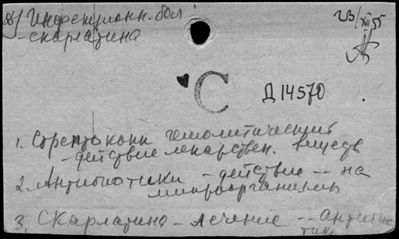 Инфекционн. бол
- скарлатина
23/XII 55
С
Д 14570
1. Стрептококк гемолитический
- действие лекарствен. веществ
2. Антибиотики - действие -- на
микроорганизмы
3. Скарлатина - лечение -- Антибио
тик